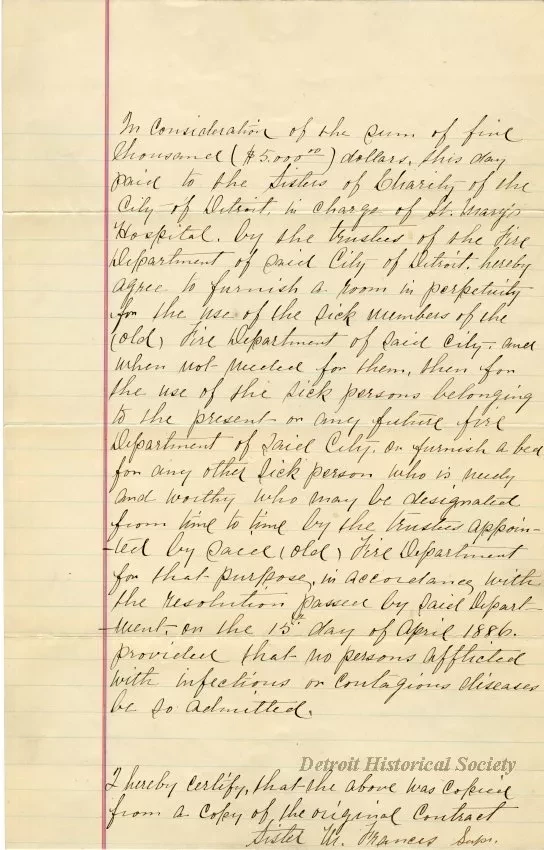 In consideration of the sum of five
thousand ($5.000.00) dollars, this day
paid to the Sisters of Charity of the
City of Detroit, in charge of St. Mary's
Hospital, by the trustees of the Fire
Department of said City of Detroit, hereby
agree to furnish a room in perpetuity
for the use of the sick members of the
(old) Fire Department of said City, and
when not needed for them, then for
the use of the sick persons belonging
to the present or any future fire
Department of said City, or furnish a bed
for any other sick person who is needy
and worthy who may be designated
from time to time by the trustees appoin-
-ted by said (old) Fire Department
for that purpose, in accordance with
the resolution passed by said Depart-
-ment, on the 15th day of April 1886.
provided that no persons afflicted
with infectious or contagious diseases
be so admitted.
Detroit Historical Society
I hereby certify, that the above was copied
from a copy of the original Contract
Sister M. Frances Supr.